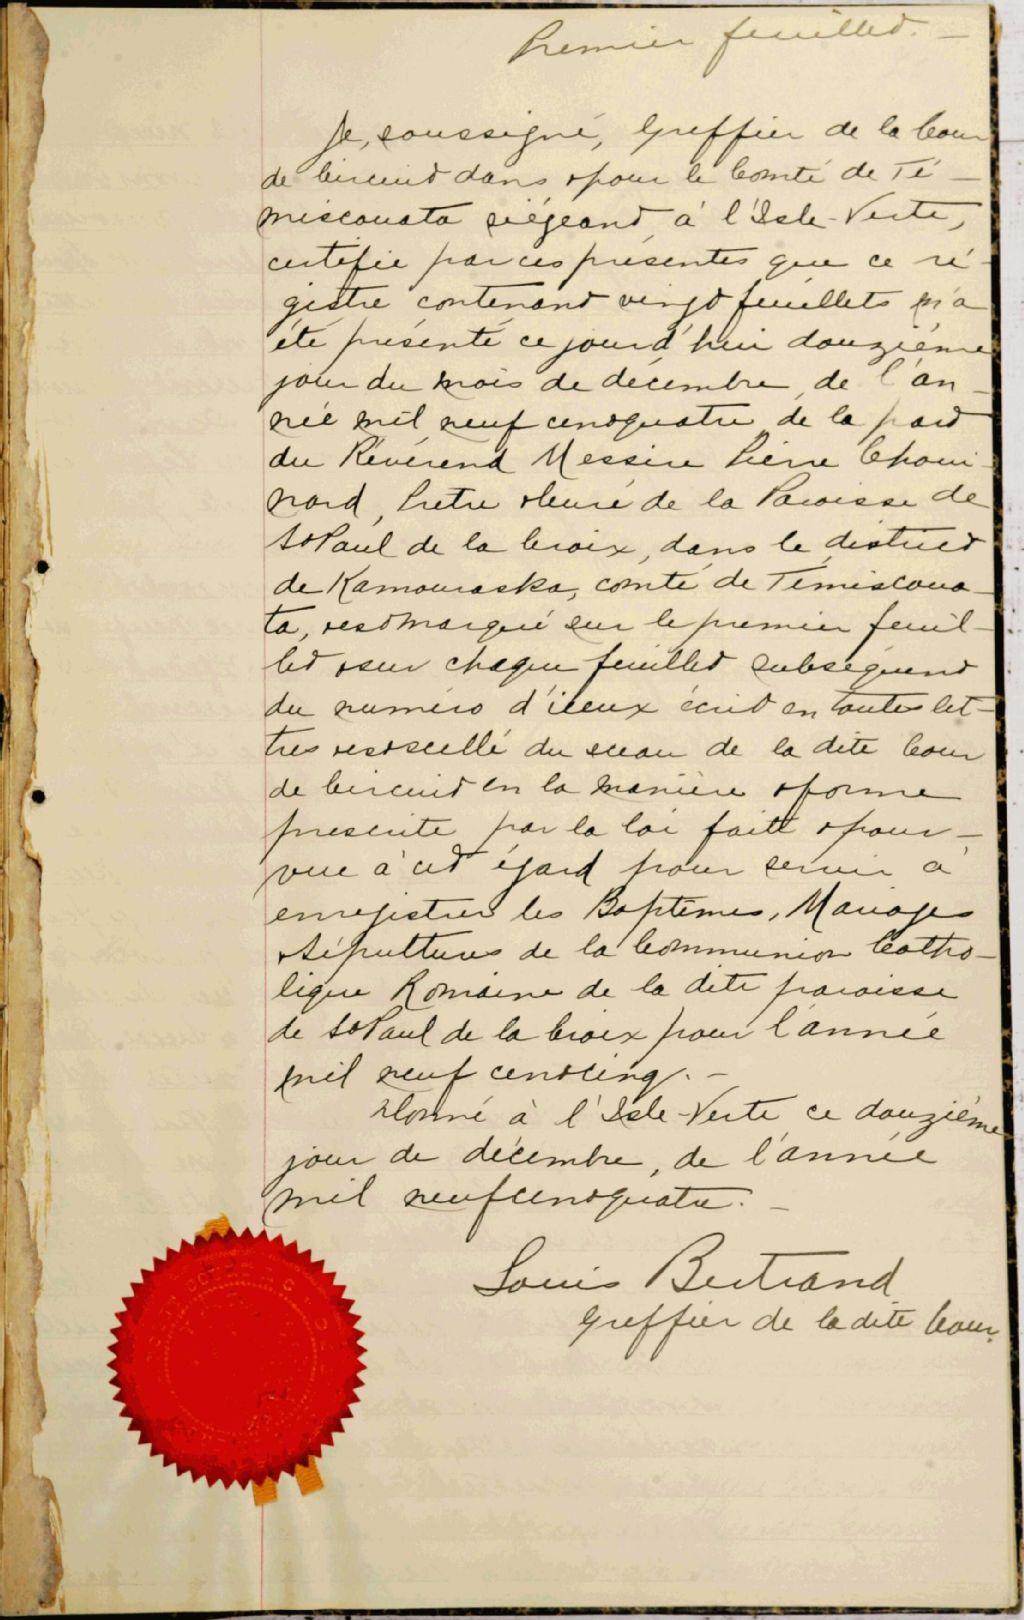 Premier feuillet. —
Je, soussigné, Greffier de la Cour
de Circuit dans & pour le Comté de Té-
miscouata siégeant à l'Isle-Verte,
certifie par ces présentes que ce ré-
gistre contenant vingt feuillets m'a
été présenté ce jourd'hui douzième
jour du mois de décembre, de l'an-
née mil neuf cent quatre de la part
du Révérend Messire Pierre Choui-
nard, Prêtre & Curé de la Paroisse de
St Paul de la Croix, dans le district
de Kamouraska, comté de Témiscoua-
ta, & est marqué sur le premier feuil-
let & sur chaque feuillet subséquent
du numéro d'iceux écrit en toutes let-
tres & est scellé du sceau de la dite Cour
de Circuit en la manière & forme
prescrite par la loi faite & pour-
vue à cet égard pour servir à
enregistrer les Baptêmes, Mariages
& Sépultures de la Communion Catho-
lique Romaine de la dite paroisse
de St Paul de la Croix pour l'année
mil neuf cent cinq. —
Donné à l'Isle-Verte ce douzième
jour de décembre, de l'année
mil neuf cent quatre. —
Louis Bertrand
Greffier de la dite Cour.